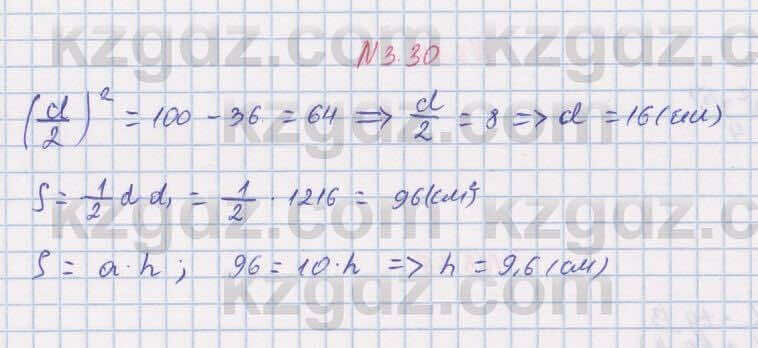 kzgdz.com
N 3.30
(d/2)² = 100 - 36 = 64 => d/2 = 8 => d = 16 (см)
kzgdz.com
S = 1/2 d d₁ = 1/2 · 1216 = 96 (см²)
kzgdz.com
S = a·h; 96 = 10·h => h = 9,6 (см)
kzgdz.com